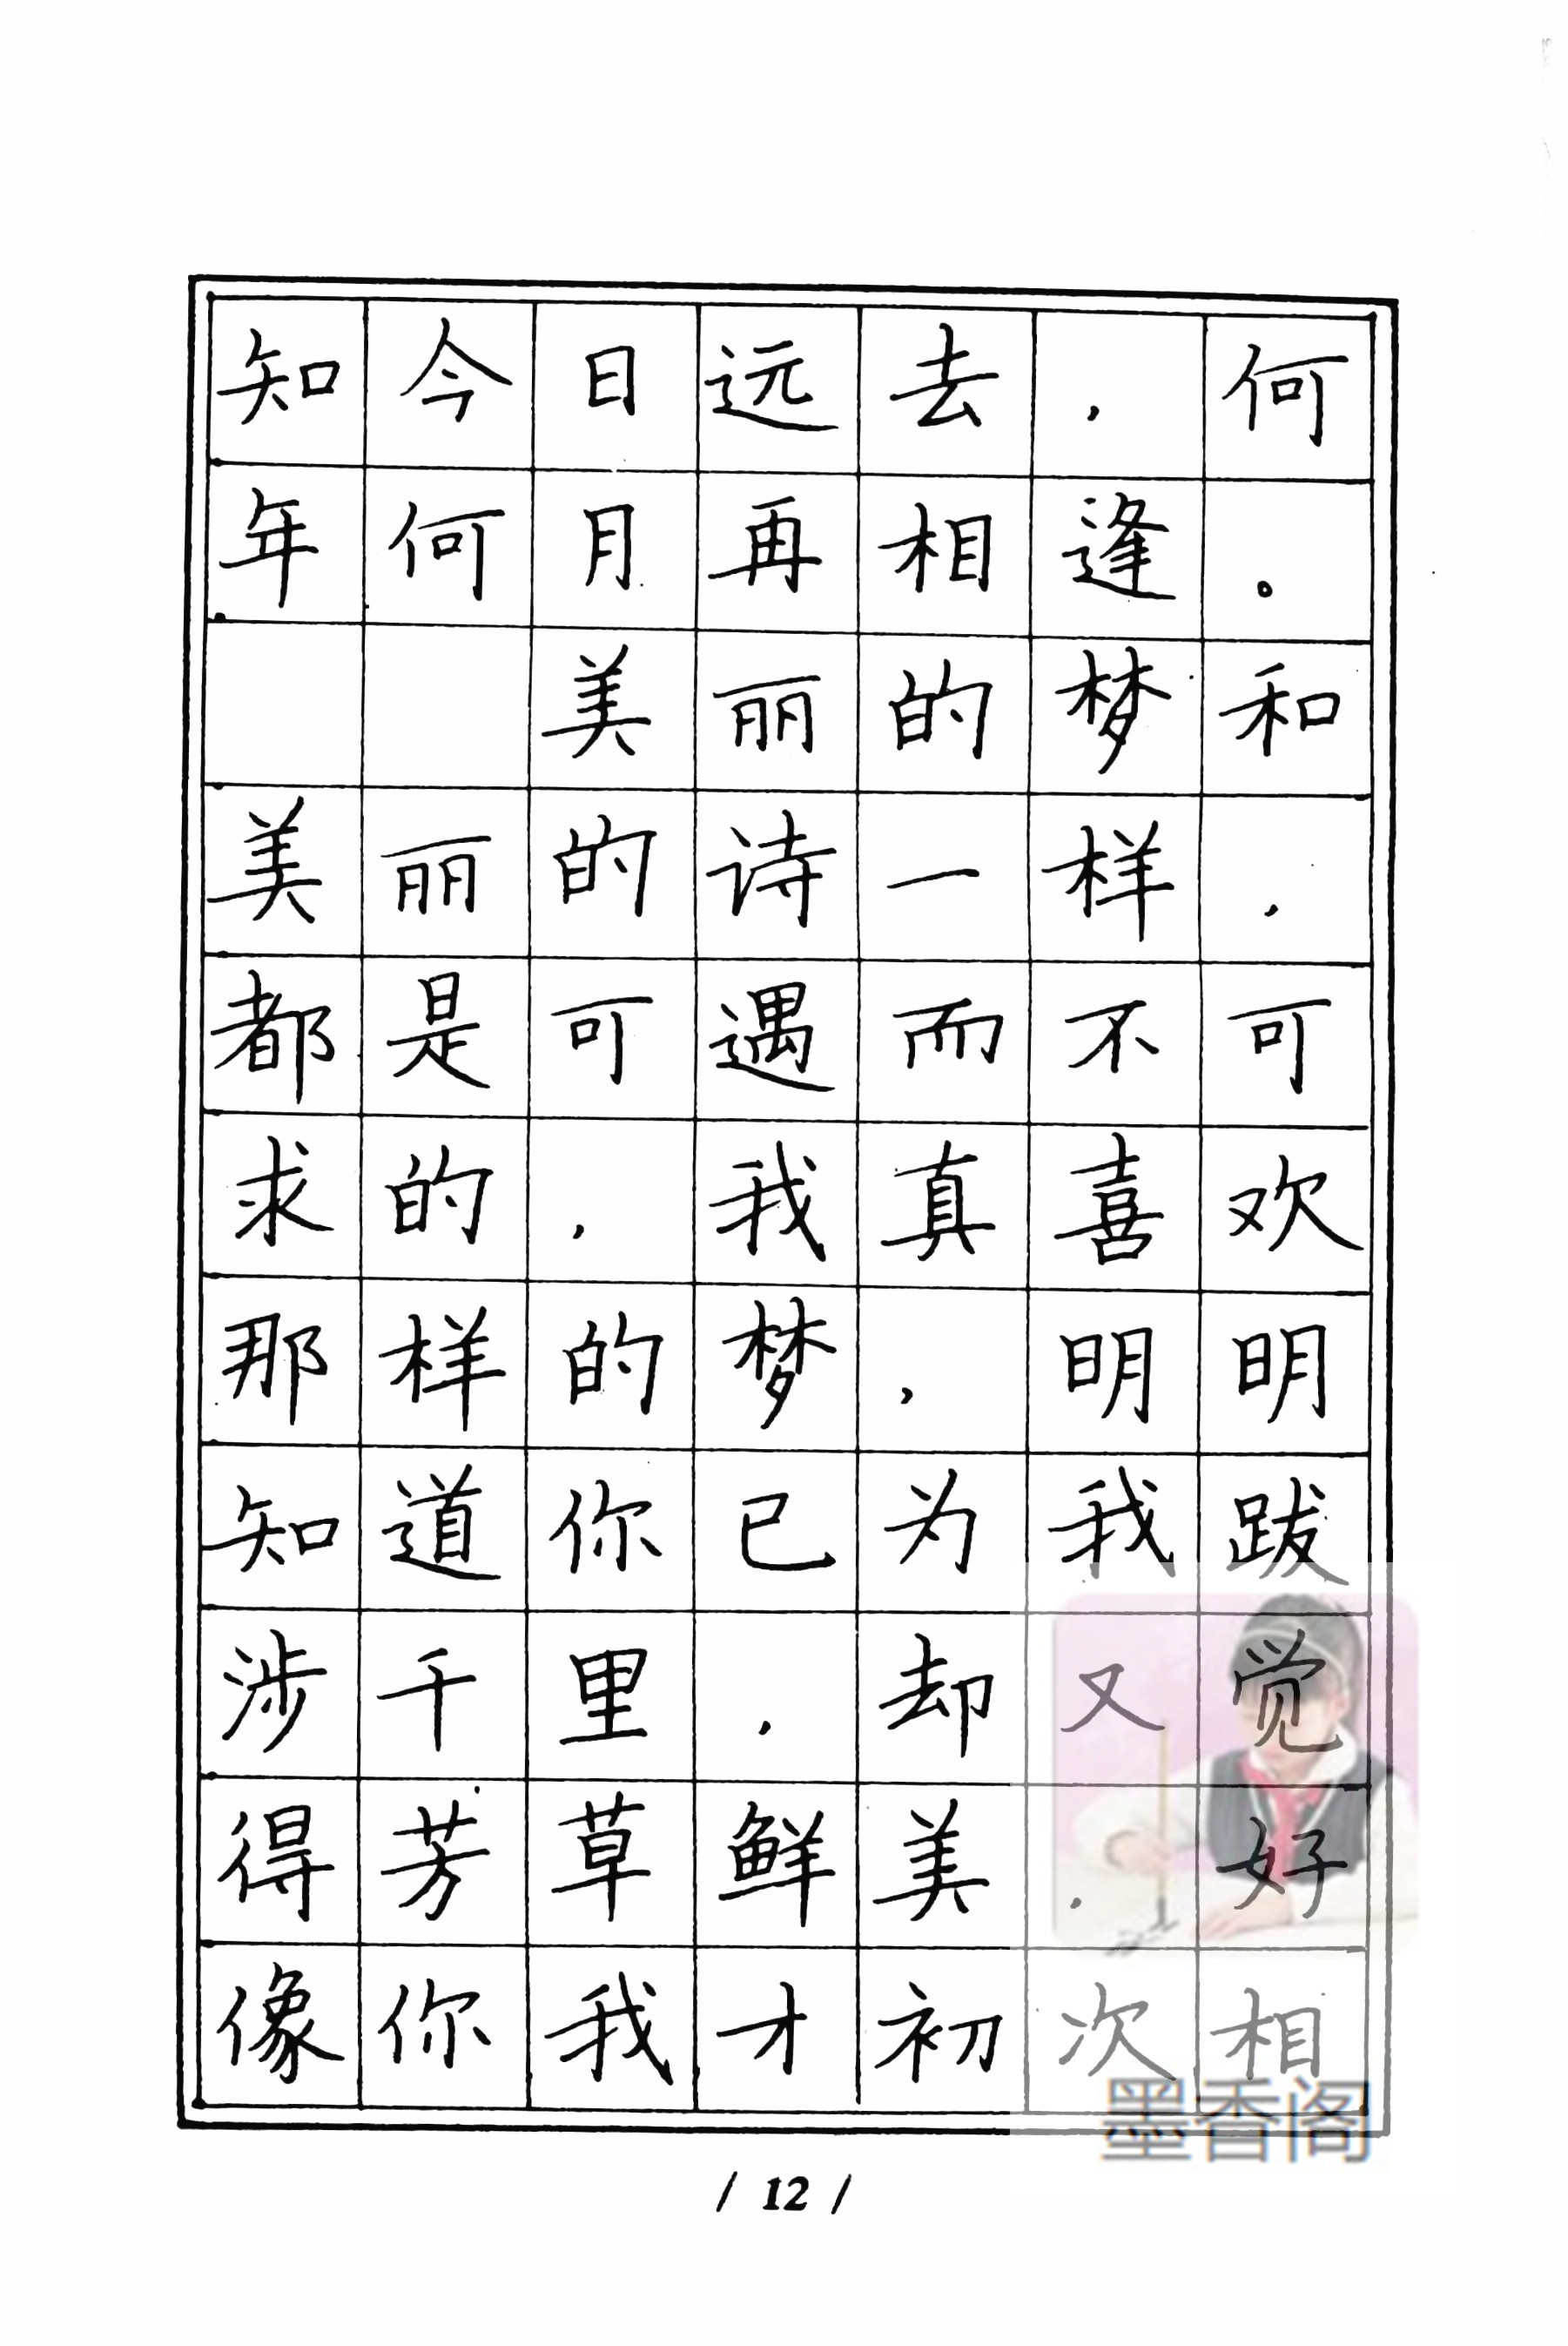 知今日远去，何
年何月再相逢。
美丽的梦和
美丽的诗一样，
都是可遇而不可
求的，我真喜欢
那样的梦，明明
知道你已为我跋
涉千里，却又觉
得芳草鲜美，好
像你我才初次相
墨香阁
/ 12 /